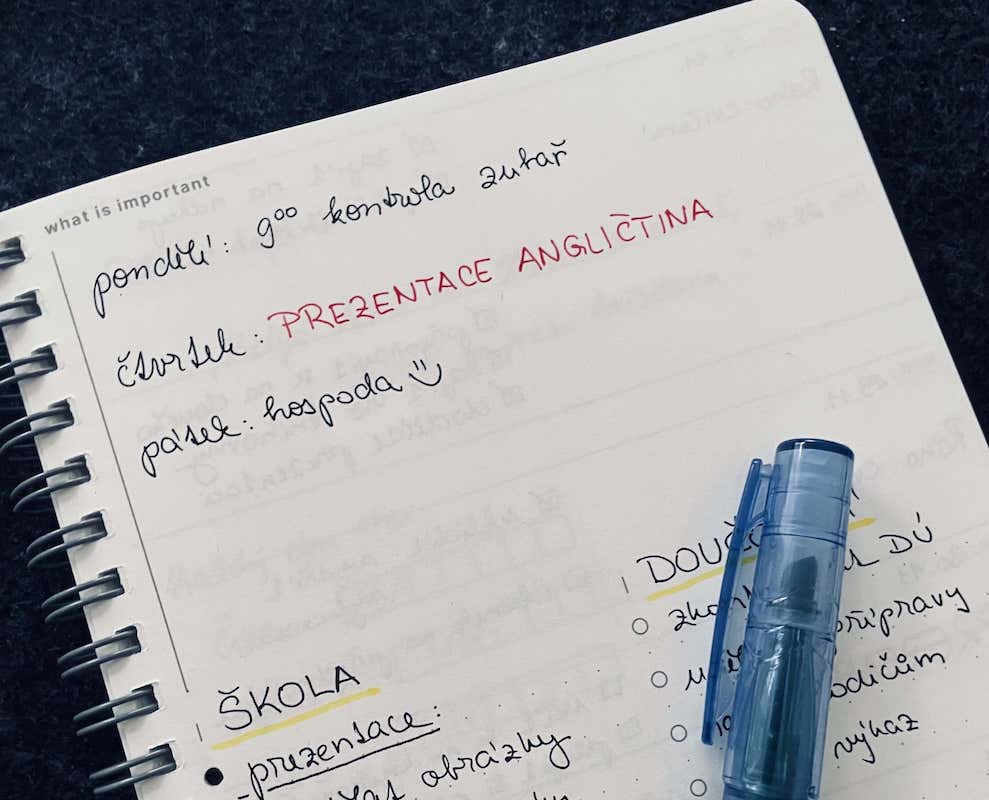 what is important
pondělí: 9⁰⁰ kontrola zubař
čtvrtek: PREZENTACE ANGLIČTINA
pátek: hospoda :)
ŠKOLA
prezentace:
obrázky
DÚ
přípravy
výkaz